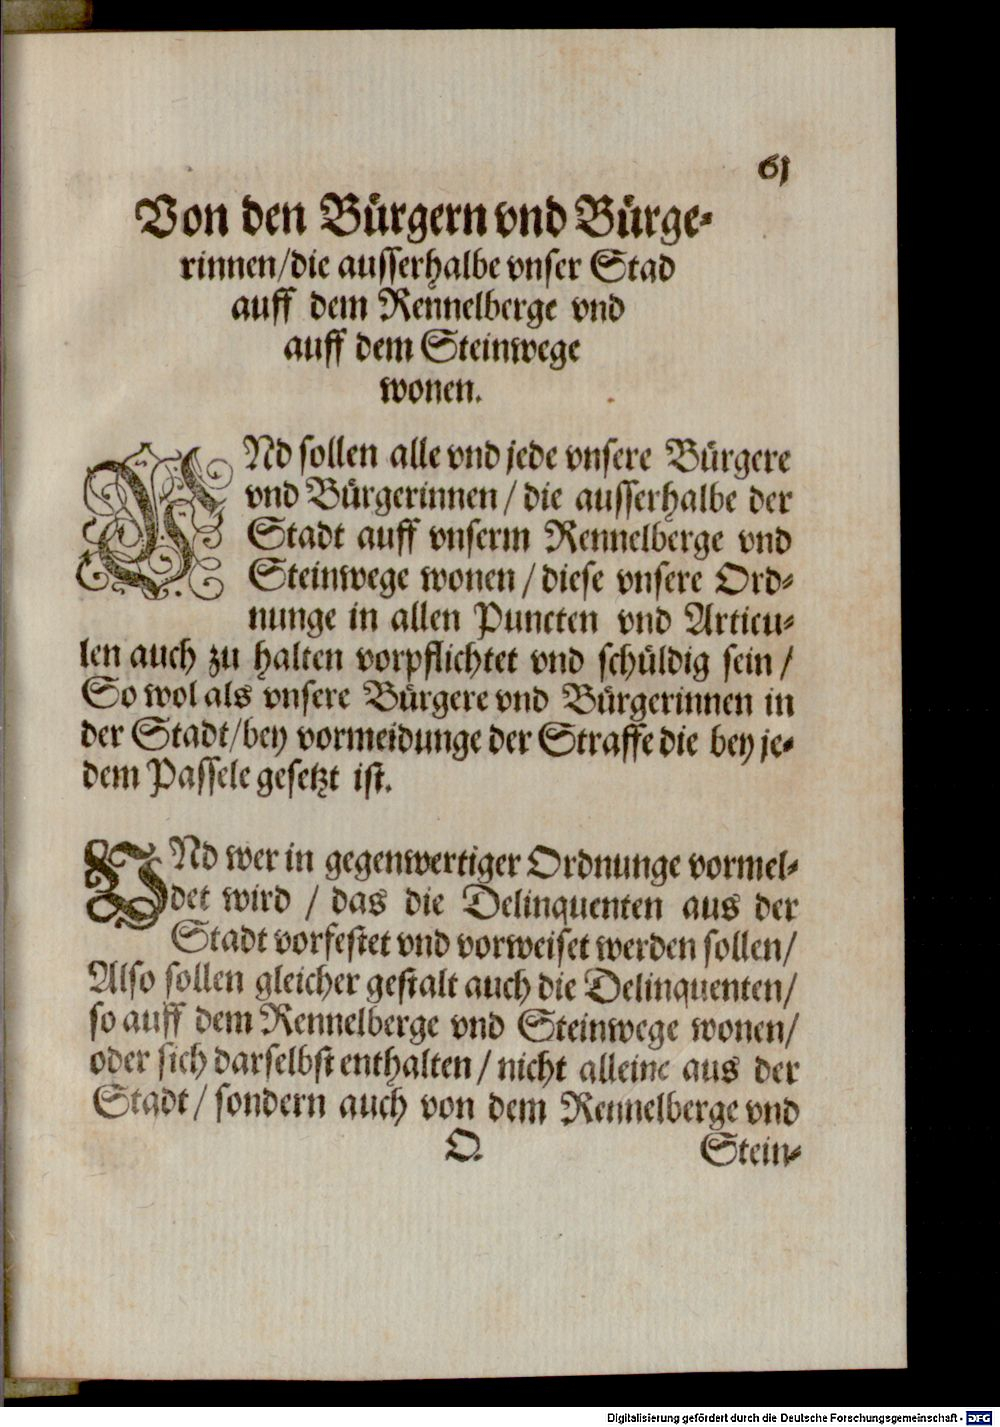 61
Von den Bürgern vnd Bürge-
rinnen/die ausserhalbe vnser Stad
auff dem Rennelberge vnd
auff dem Steinwege
wonen.
VNd sollen alle vnd jede vnsere Bürgere
vnd Bürgerinnen / die ausserhalbe der
Stadt auff vnserm Rennelberge vnd
Steinwege wonen / diese vnsere Ord-
nunge in allen Puncten vnd Articu-
len auch zu halten vorpflichtet vnd schüldig sein /
So wol als vnsere Bürgere vnd Bürgerinnen in
der Stadt/bey vormeidunge der Straffe die bey je-
dem Passele gesetzt ist.
VNd wer in gegenwertiger Ordnunge vormel-
det wird / das die Delinquenten aus der
Stadt vorfestet vnd vorweiset werden sollen/
Also sollen gleicher gestalt auch die Delinquenten/
so auff dem Rennelberge vnd Steinwege wonen/
oder sich darselbst enthalten / nicht alleine aus der
Stadt / sondern auch von dem Rennelberge vnd
Q Stein-
Digitalisierung gefördert durch die Deutsche Forschungsgemeinschaft - DFG